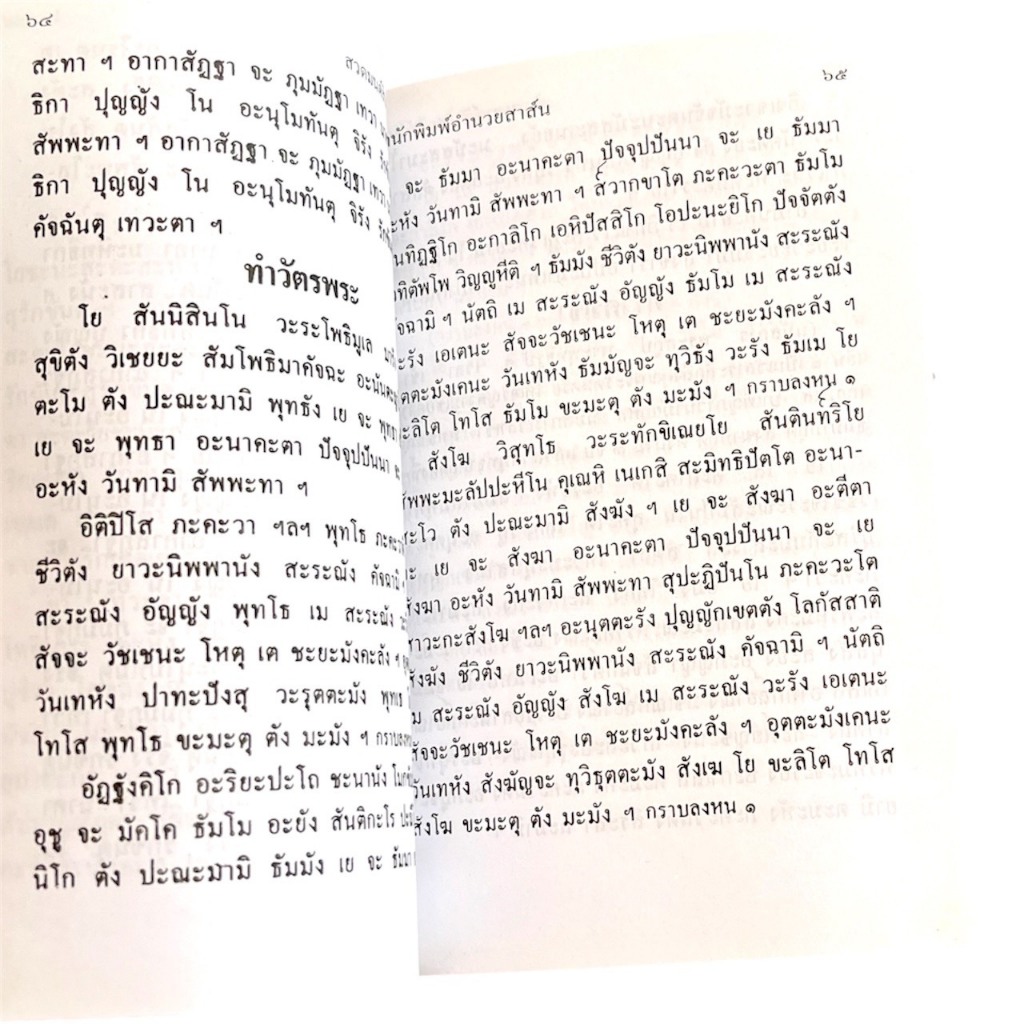 ๖๔
สวดมนต์
สะทา ฯ อากาสัฏฐา จะ ภุมมัฏฐา เทวา
ธิกา ปุญญัง โน อะนุโมทันตุ จิรัง
สัพพะทา ฯ อากาสัฏฐา จะ ภุมมัฏฐา เทวา
ธิกา ปุญญัง โน อะนุโมทันตุ จิรัง
คัจฉันตุ เทวะตา ฯ
ทำวัตรพระ
โย สันนิสินโน วะระโพธิมูเล
สุขิตัง วิเชยยะ สัมโพธิมาคัจฉะ
ตะโม ตัง ปะณะมามิ พุทธัง เย จะ
เย จะ พุทธา อะนาคะตา ปัจจุปปันนา
อะหัง วันทามิ สัพพะทา ฯ
อิติปิโส ภะคะวา ฯลฯ พุทโธ
ชีวิตัง ยาวะนิพพานัง สะระณัง
สะระณัง อัญญัง พุทโธ เม สะระณัง
สัจจะ วัชเชนะ โหตุ เต ชะยะมังคะลัง ฯ
วันเทหัง ปาทะปังสุ วะรุตตะมัง
โทโส พุทโธ ขะมะตุ ตัง มะมัง ฯ
อัฏฐังคิโก อะริยะปะโถ ชะนานัง
อุชู จะ มัคโค ธัมโม อะยัง สันติกะโร
นิโก ตัง ปะณะมามิ ธัมมัง เย จะ
๖๕
นักพิมพ์อำนวยสาส์น
จะ ธัมมา อะนาคะตา ปัจจุปปันนา จะ เย ธัมมา
ะหัง วันทามิ สัพพะทา ฯ ส๎วากขาโต ภะคะวะตา ธัมโม
นทิฏฐิโก อะกาลิโก เอหิปัสสิโก โอปะนะยิโก ปัจจัตตัง
ทิตัพโพ วิญญูหีติ ฯ ธัมมัง ชีวิตัง ยาวะนิพพานัง สะระณัง
จฉามิ ฯ นัตถิ เม สะระณัง อัญญัง ธัมโม เม สะระณัง
ะรัง เอเตนะ สัจจะวัชเชนะ โหตุ เต ชะยะมังคะลัง ฯ
ตตะมังเคนะ วันเทหัง ธัมมัญจะ ทุวิธัง วะรัง ธัมเม โย
ะลิโต โทโส ธัมโม ขะมะตุ ตัง มะมัง ฯ กราบลงหน ๑
สังโฆ วิสุทโธ วะระทักขิเณยโย สันตินท๎ริโย
สัพพะมะลัปปะหีโน คุเณหิ เนเกสิ สะมิทธิปัตโต อะนา-
ะโว ตัง ปะณะมามิ สังฆัง ฯ เย จะ สังฆา อะตีตา
ะ เย จะ สังฆา อะนาคะตา ปัจจุปปันนา จะ เย
สังฆา อะหัง วันทามิ สัพพะทา สุปะฏิปันโน ภะคะวะโต
าวะกะสังโฆ ฯลฯ อะนุตตะรัง ปุญญักเขตตัง โลกัสสาติ
สังฆัง ชีวิตัง ยาวะนิพพานัง สะระณัง คัจฉามิ ฯ นัตถิ
ม สะระณัง อัญญัง สังโฆ เม สะระณัง วะรัง เอเตนะ
สัจจะวัชเชนะ โหตุ เต ชะยะมังคะลัง ฯ อุตตะมังเคนะ
วันเทหัง สังฆัญจะ ทุวิธุตตะมัง สังเฆ โย ขะลิโต โทโส
สังโฆ ขะมะตุ ตัง มะมัง ฯ กราบลงหน ๑